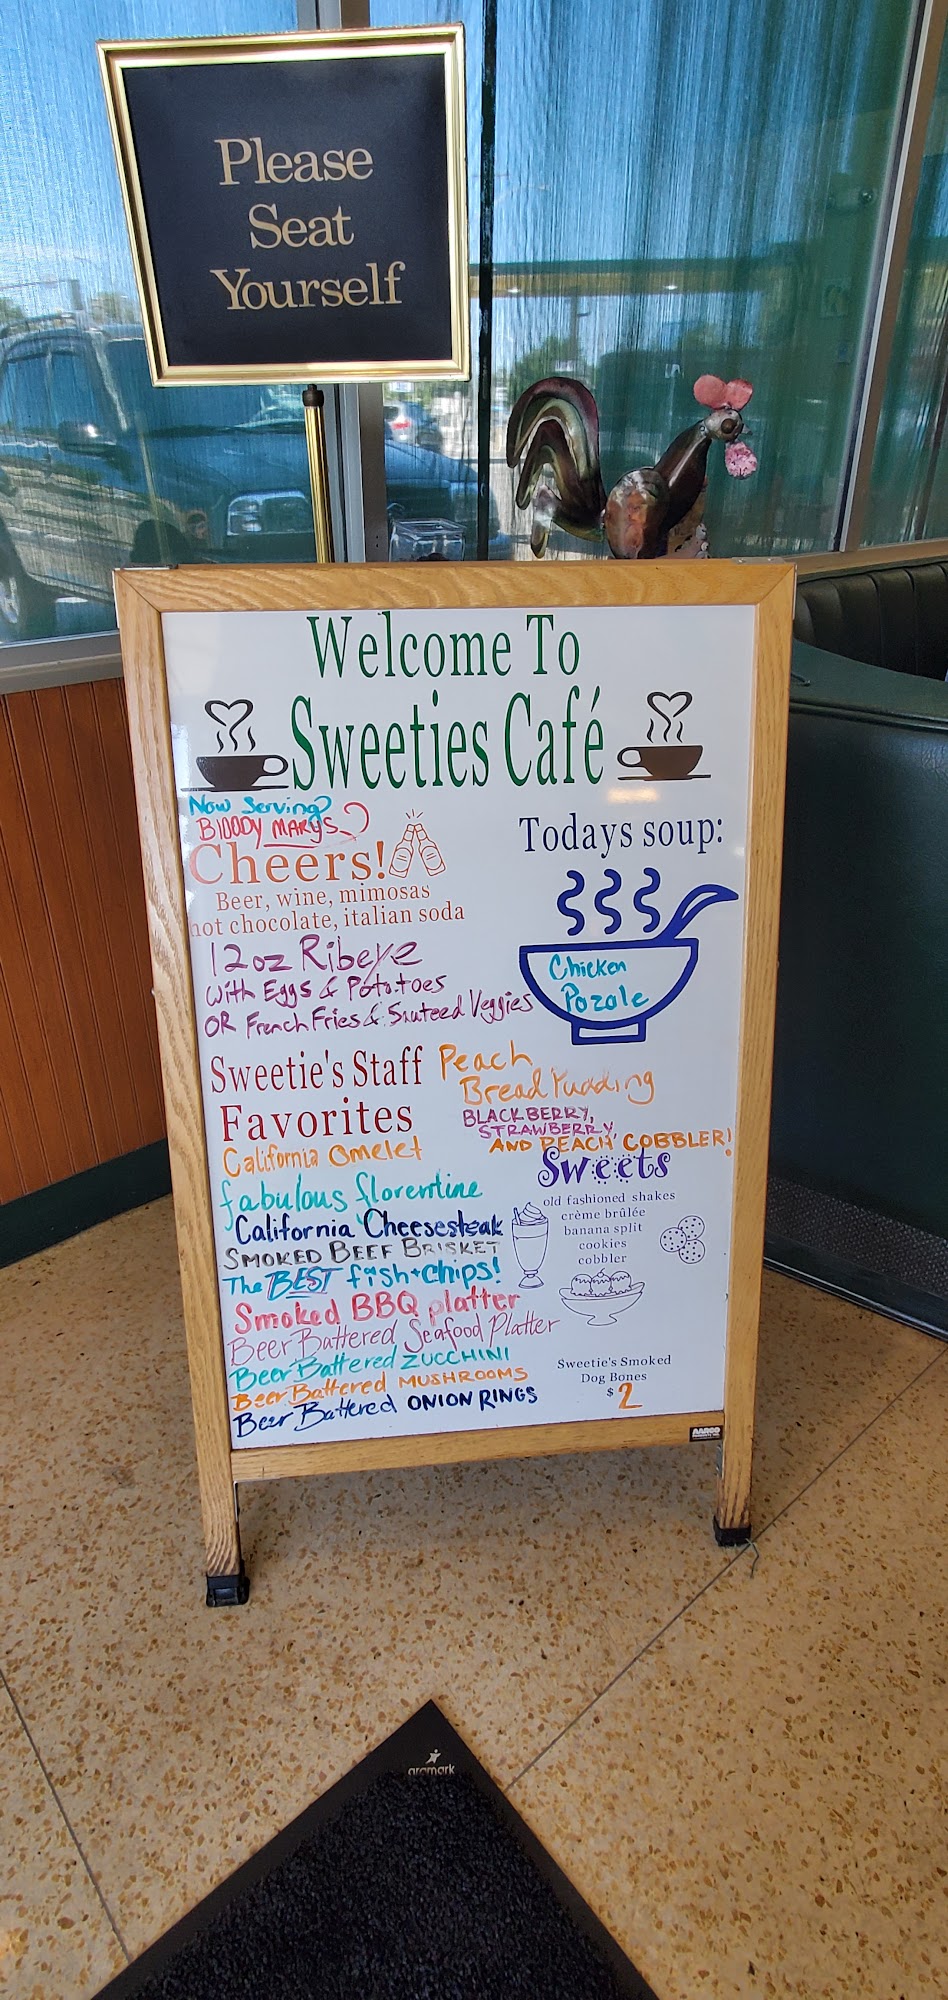 Please
Seat
Yourself
Welcome To
Sweeties Café
Now Serving
BlOODY MARYS
Cheers!
Beer, wine, mimosas
hot chocolate, italian soda
12oz Ribeye
with Eggs & Potatoes
OR French Fries & Sauteed Veggies
Todays soup:
Chicken
Pozole
Sweetie's Staff
Favorites
California Omelet
fabulous florentine
California Cheesesteak
SMOKED BEEF BRISKET
The BEST fish+chips!
Smoked BBQ platter
Beer Battered Seafood Platter
Beer Battered ZUCCHINI
Beer Battered MUSHROOMS
Beer Battered ONION RINGS
Peach
Bread Pudding
BLACKBERRY,
STRAWBERRY,
AND PEACH COBBLER!
Sweets
old fashioned shakes
crème brûlée
banana split
cookies
cobbler
Sweetie's Smoked
Dog Bones
$2
AARCO
aramark